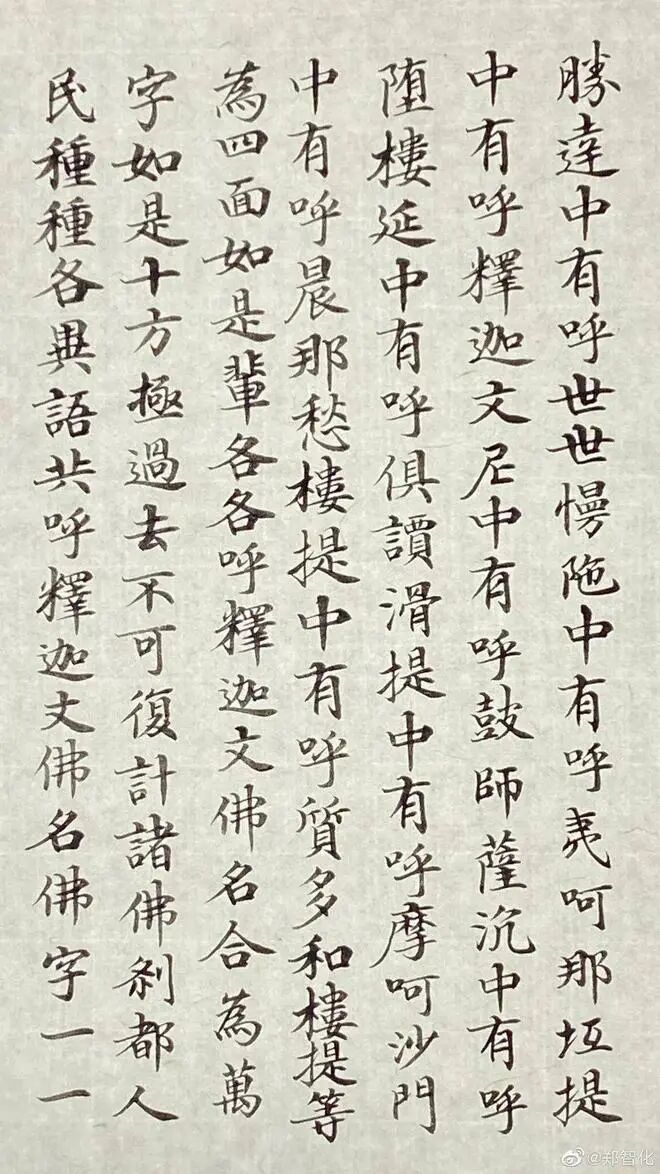 勝達中有呼世世慢陁中有呼夷呵那坘提
中有呼釋迦文尼中有呼鼓師薩沉中有呼
堕樓延中有呼俱讀滑提中有呼摩呵沙門
中有呼晨那愁樓提中有呼質多和樓提等
為四面如是輩各各呼釋迦文佛名合為萬
字如是十方極過去不可復計諸佛刹都人
民種種各異語共呼釋迦文佛名佛字一一
@郑智化